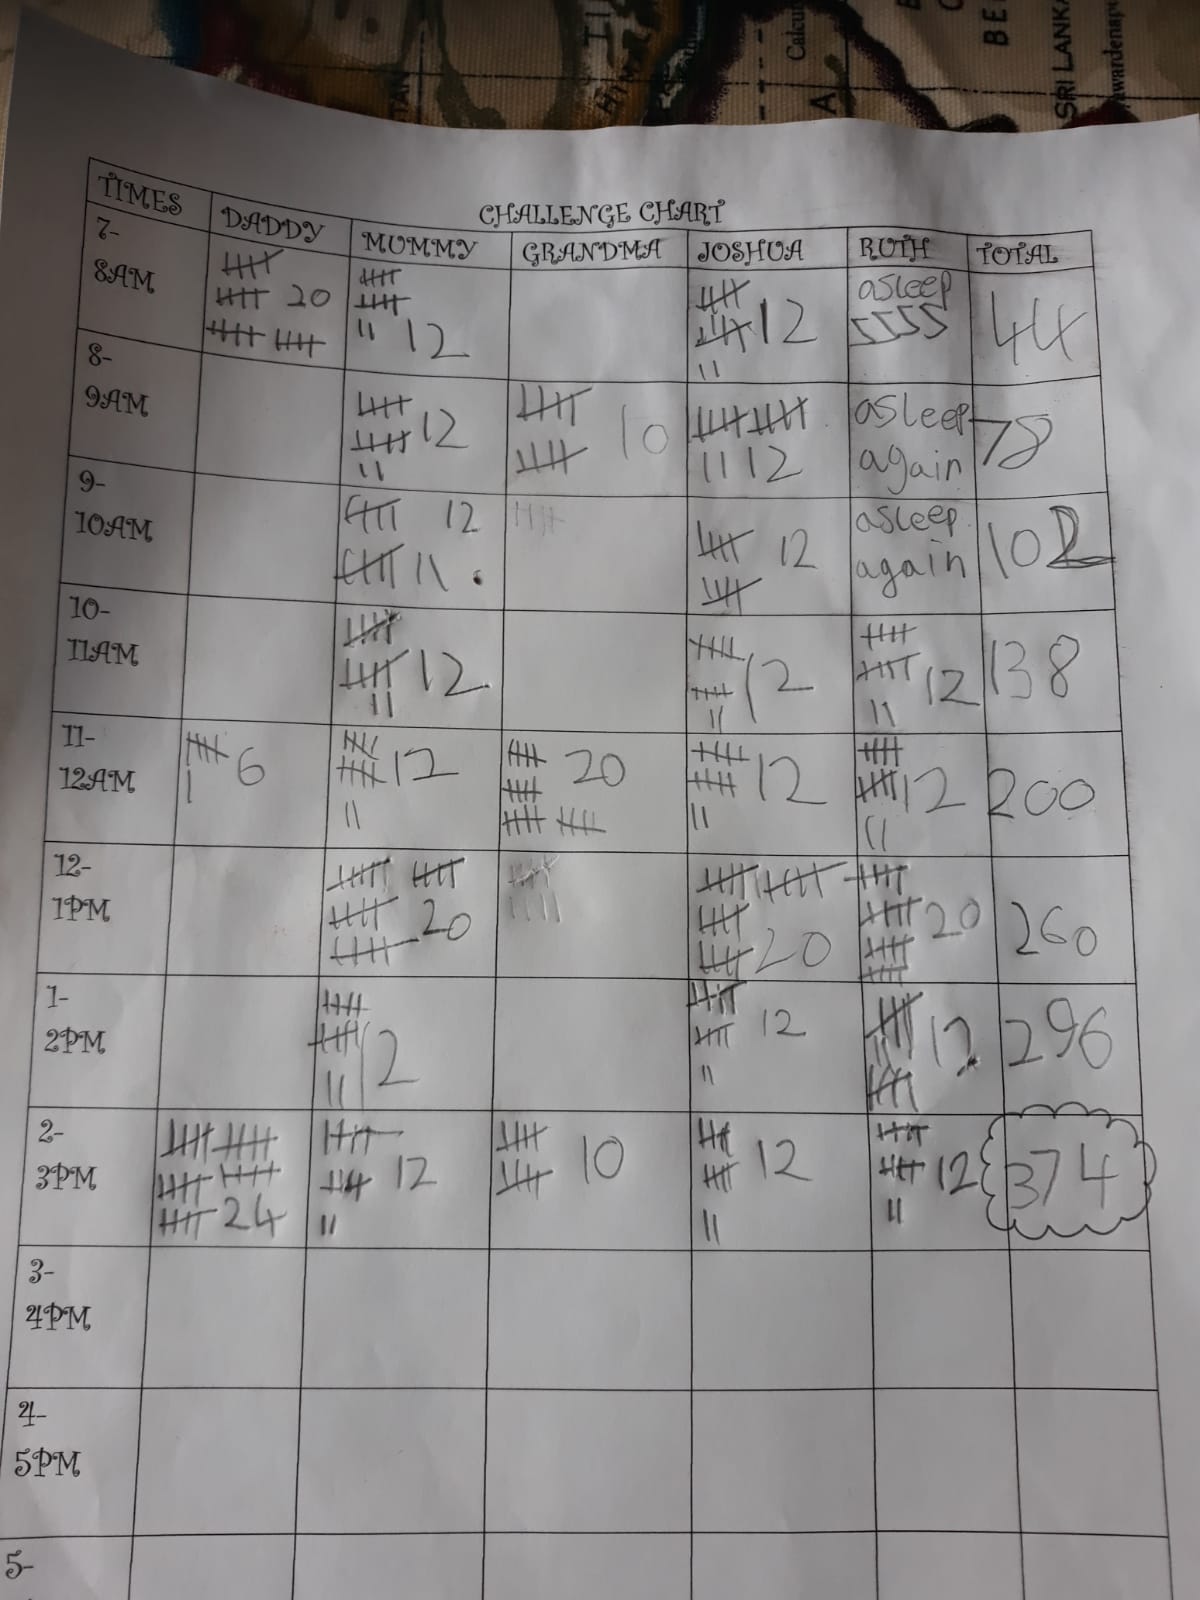 BE
SRI LANKA
Calcu
A
CHALLENGE CHART
TIMES DADDY MUMMY GRANDMA JOSHUA RUTH TOTAL
7-
8AM 20 12 12 asleep 44
8-
9AM 12 10 12 asleep again 78
9-
10AM 12 12 asleep again 102
10-
11AM 12 12 12 138
11-
12AM 6 12 20 12 12 200
12-
1PM 20 20 20 260
1-
2PM 12 12 12 296
2-
3PM 24 12 10 12 12 374
3-
4PM
4-
5PM
5-